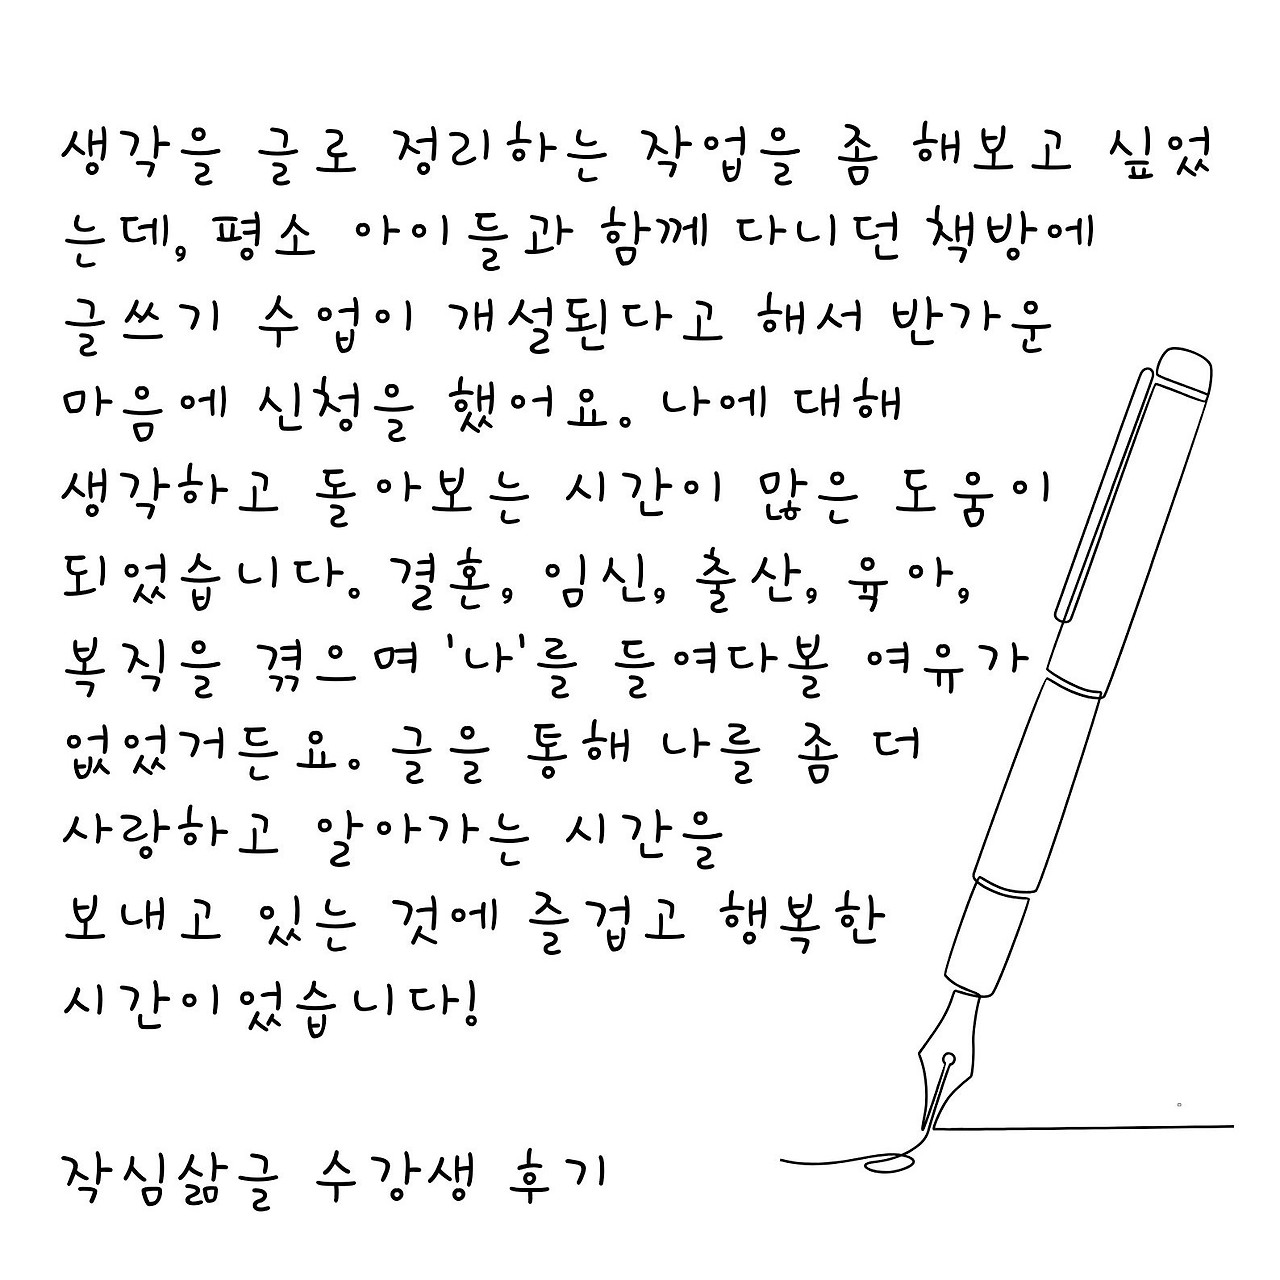 생각을 글로 정리하는 작업을 좀 해보고 싶었
는데, 평소 아이들과 함께 다니던 책방에
글쓰기 수업이 개설된다고 해서 반가운
마음에 신청을 했어요. 나에 대해
생각하고 돌아보는 시간이 많은 도움이
되었습니다. 결혼, 임신, 출산, 육아,
복직을 겪으며 '나'를 들여다볼 여유가
없었거든요. 글을 통해 나를 좀 더
사랑하고 알아가는 시간을
보내고 있는 것에 즐겁고 행복한
시간이었습니다!
작심삶글 수강생 후기